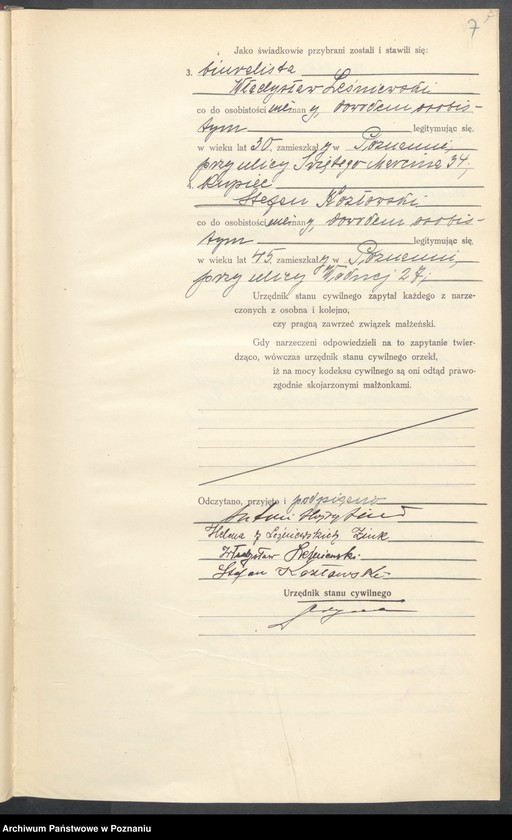 7
Jako świadkowie przybrani zostali i stawili się:
3. biuralista
Władysław Leśniewski
co do osobistości uzinan y, dowodem osobis-
tym legitymując się,
w wieku lat 30, zamieszkał y w Poznaniu,
przy ulicy Świętego Marcina 34,
4. kupiec
Stefan Kozłowski
co do osobistości uzinan y, dowodem osobis-
tym legitymując się,
w wieku lat 45, zamieszkał y w Poznaniu,
przy ulicy Wodnej 27,
Urzędnik stanu cywilnego zapytał każdego z narze-
czonych z osobna i kolejno,
czy pragną zawrzeć związek małżeński.
Gdy narzeczeni odpowiedzieli na to zapytanie twier-
dząco, wówczas urzędnik stanu cywilnego orzekł,
iż na mocy kodeksu cywilnego są oni odtąd prawo-
zgodnie skojarzonymi małżonkami.
Odczytano, przyjęto i podpisano
Antoni
Helena z Leśniewskich Zink
Władysław Leśniewski
Stefan Kozłowski
Urzędnik stanu cywilnego
Archiwum Państwowe w Poznaniu